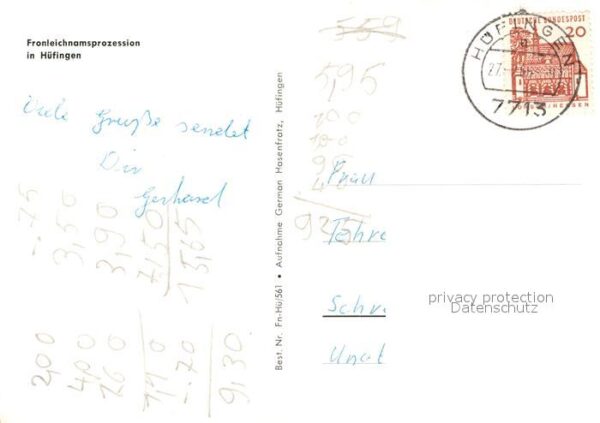 Fronleichnamsprozession
in Hüfingen
Viele Grüße sendet
Dir
Gerhard
-.75
3,50
3,90
7,50
15,65
2,00
4,00
1,60
-.70
9,30
Best. Nr. Fn-Hü/561 • Aufnahme German Hasenfratz, Hüfingen
559
5,95
100
100
935
DEUTSCHE BUNDESPOST
20
HÜFINGEN
7713
Frau
Schra
Unat
privacy protection
Datenschutz